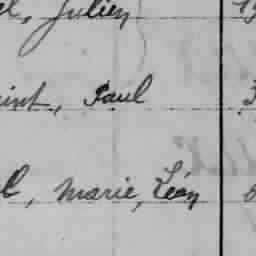 el, Julien
int, Paul
l, Marie, Léon